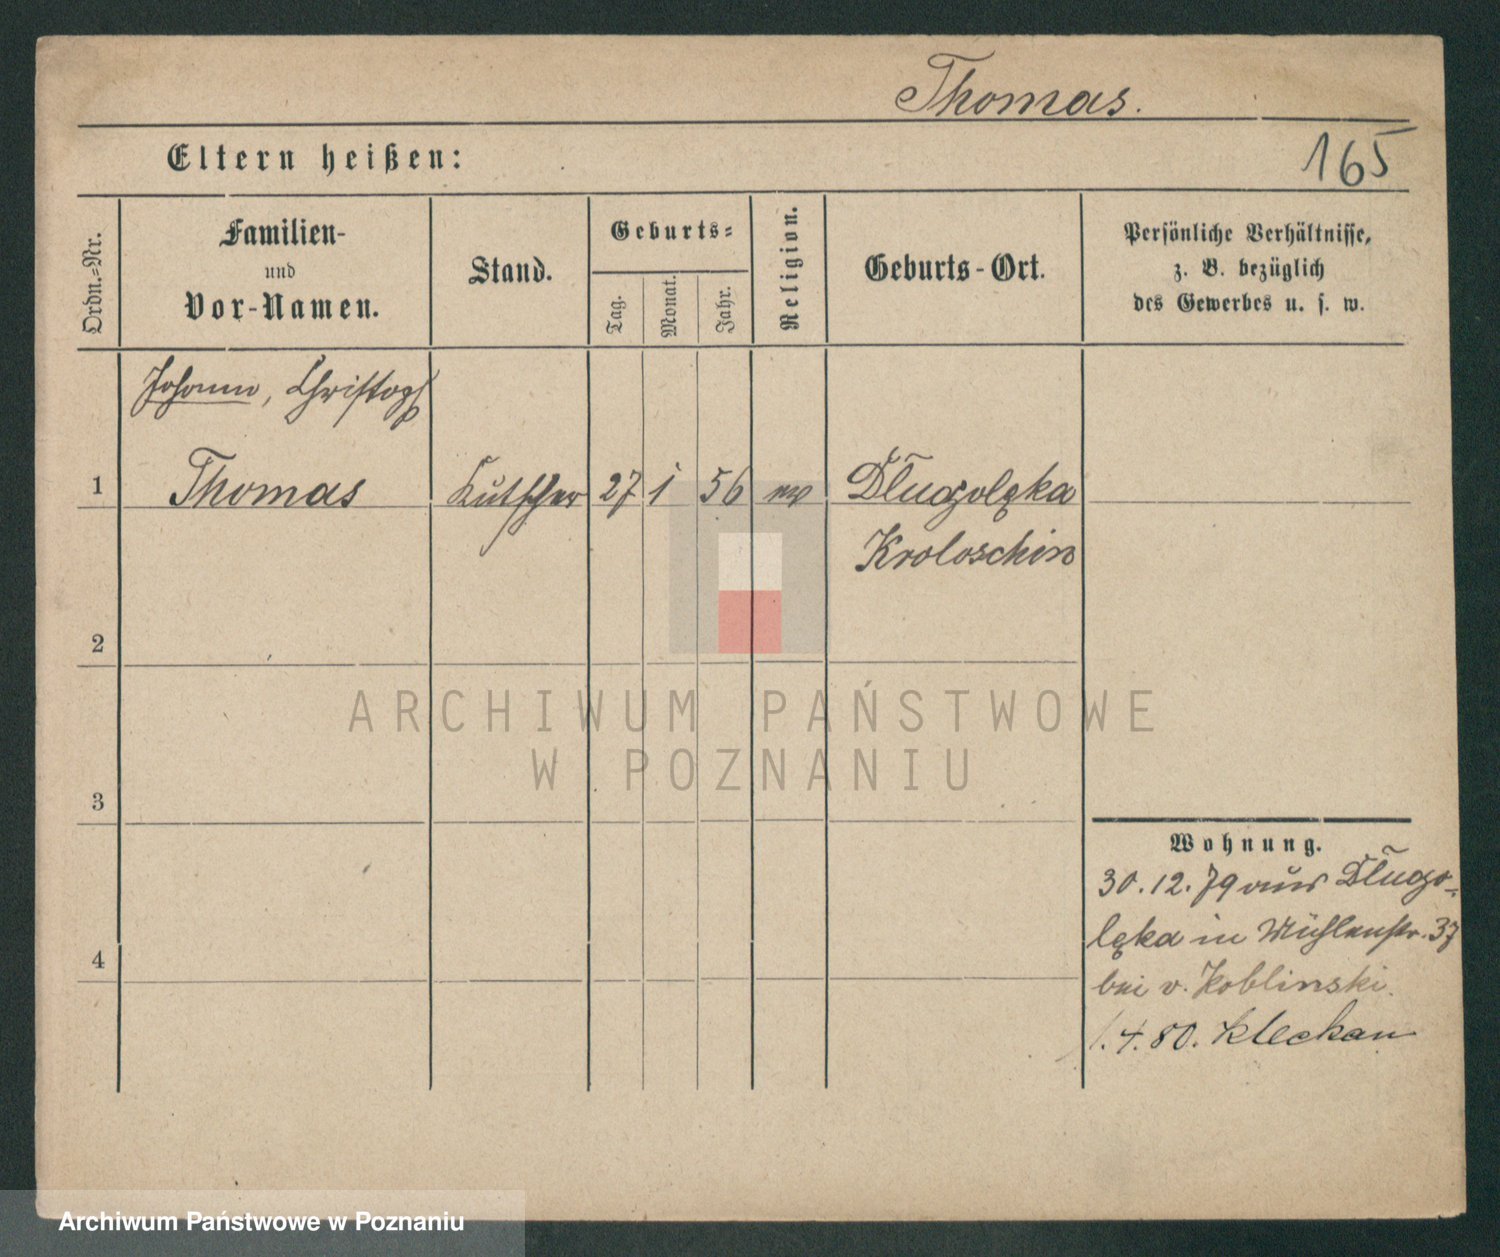 Thomas.
165
Eltern heißen:
Ordn.=Nr.
Familien-
und
Vor-Namen.
Stand.
Geburts=
Tag.
Monat.
Jahr.
Religion.
Geburts-Ort.
Persönliche Verhältnisse,
z. B. bezüglich
des Gewerbes u. s. w.
Johann, Christoph
1 Thomas Kutscher 27 1 56 ev Dlugolęka
Kroloschin
2
3
4
Wohnung.
30.12.79 aus Dlugo=
lęka in Mühlenstr. 37
bei v. Koblinski.
1.4.80. Kleckau
ARCHIWUM PAŃSTWOWE
W POZNANIU
Archiwum Państwowe w Poznaniu